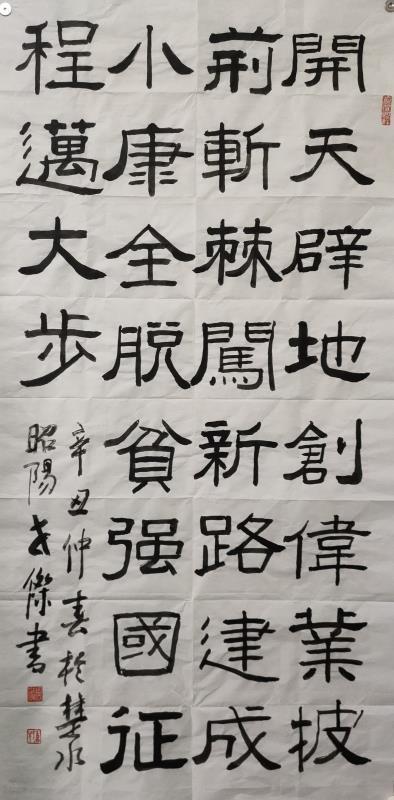 開天辟地創偉業披
荆斬棘闖新路建成
小康全脱貧强國征
程邁大步
辛丑仲春於楚水
昭陽
傑書